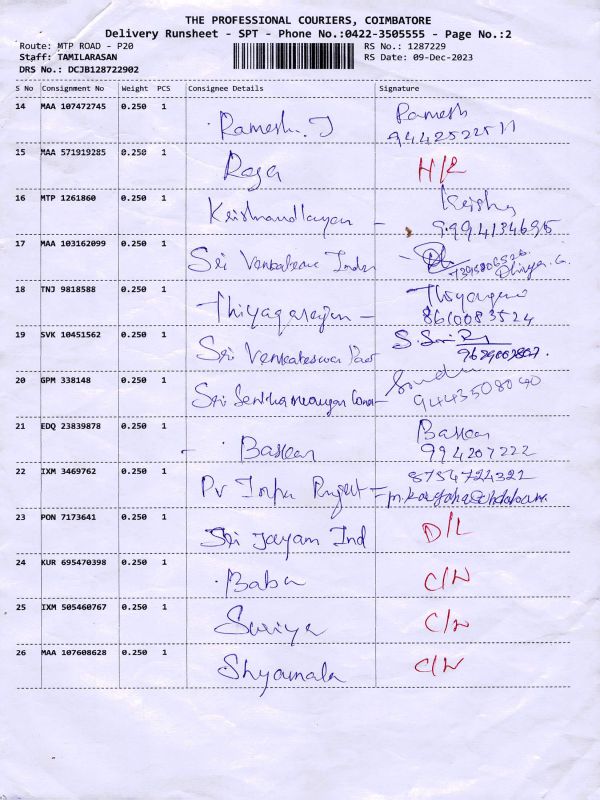 THE PROFESSIONAL COURIERS, COIMBATORE
Delivery Runsheet - SPT - Phone No.:0422-3505555 - Page No.:2
Route: MTP ROAD - P20 RS No.: 1287229
Staff: TAMILARASAN RS Date: 09-Dec-2023
DRS No.: DCJB128722902
S No Consignment No Weight PCS Consignee Details Signature
14 MAA 107472745 0.250 1 Ramesh. J Ramesh
9442522511
15 MAA 571919285 0.250 1 Raja H/L
16 MTP 1261860 0.250 1 Krishnandhayan - Krishn
9994134695
17 MAA 103162099 0.250 1 Sri Venkateswa Indu -
Dhivya. G.
18 TNJ 9818588 0.250 1 Thiyagarajan - Thiyagara
8610083524
19 SVK 10451562 0.250 1 Sri Venkateswar S. Sri
20 GPM 338148 0.250 1 Sri
9443508090
21 EDQ 23839878 0.250 1 - Baskar Baskar
994207222
22 IXM 3469762 0.250 1 Pv Infra Project - 8754724322
23 PON 7173641 0.250 1 Sri Jayam Ind D/L
24 KUR 695470398 0.250 1 Babu C/N
25 IXM 505460767 0.250 1 Suriya C/N
26 MAA 107608628 0.250 1 Shyamala C/N